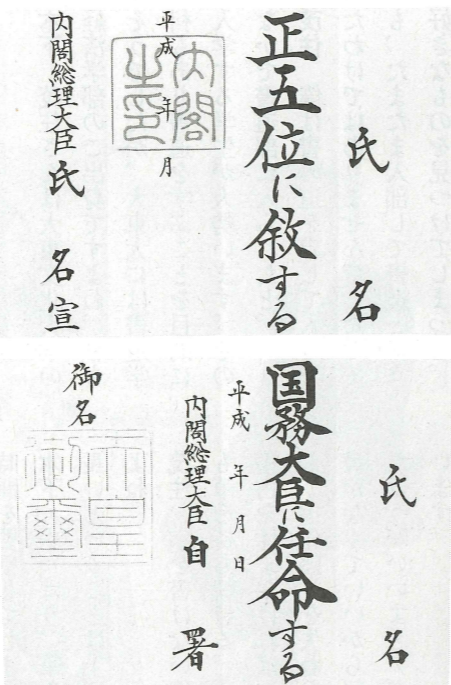 氏名
正五位に叙する
平成 年 月
内閣之印
内閣総理大臣 氏名宣
氏名
国務大臣に任命する
平成 年 月 日
内閣総理大臣 自署
御名
天皇御璽